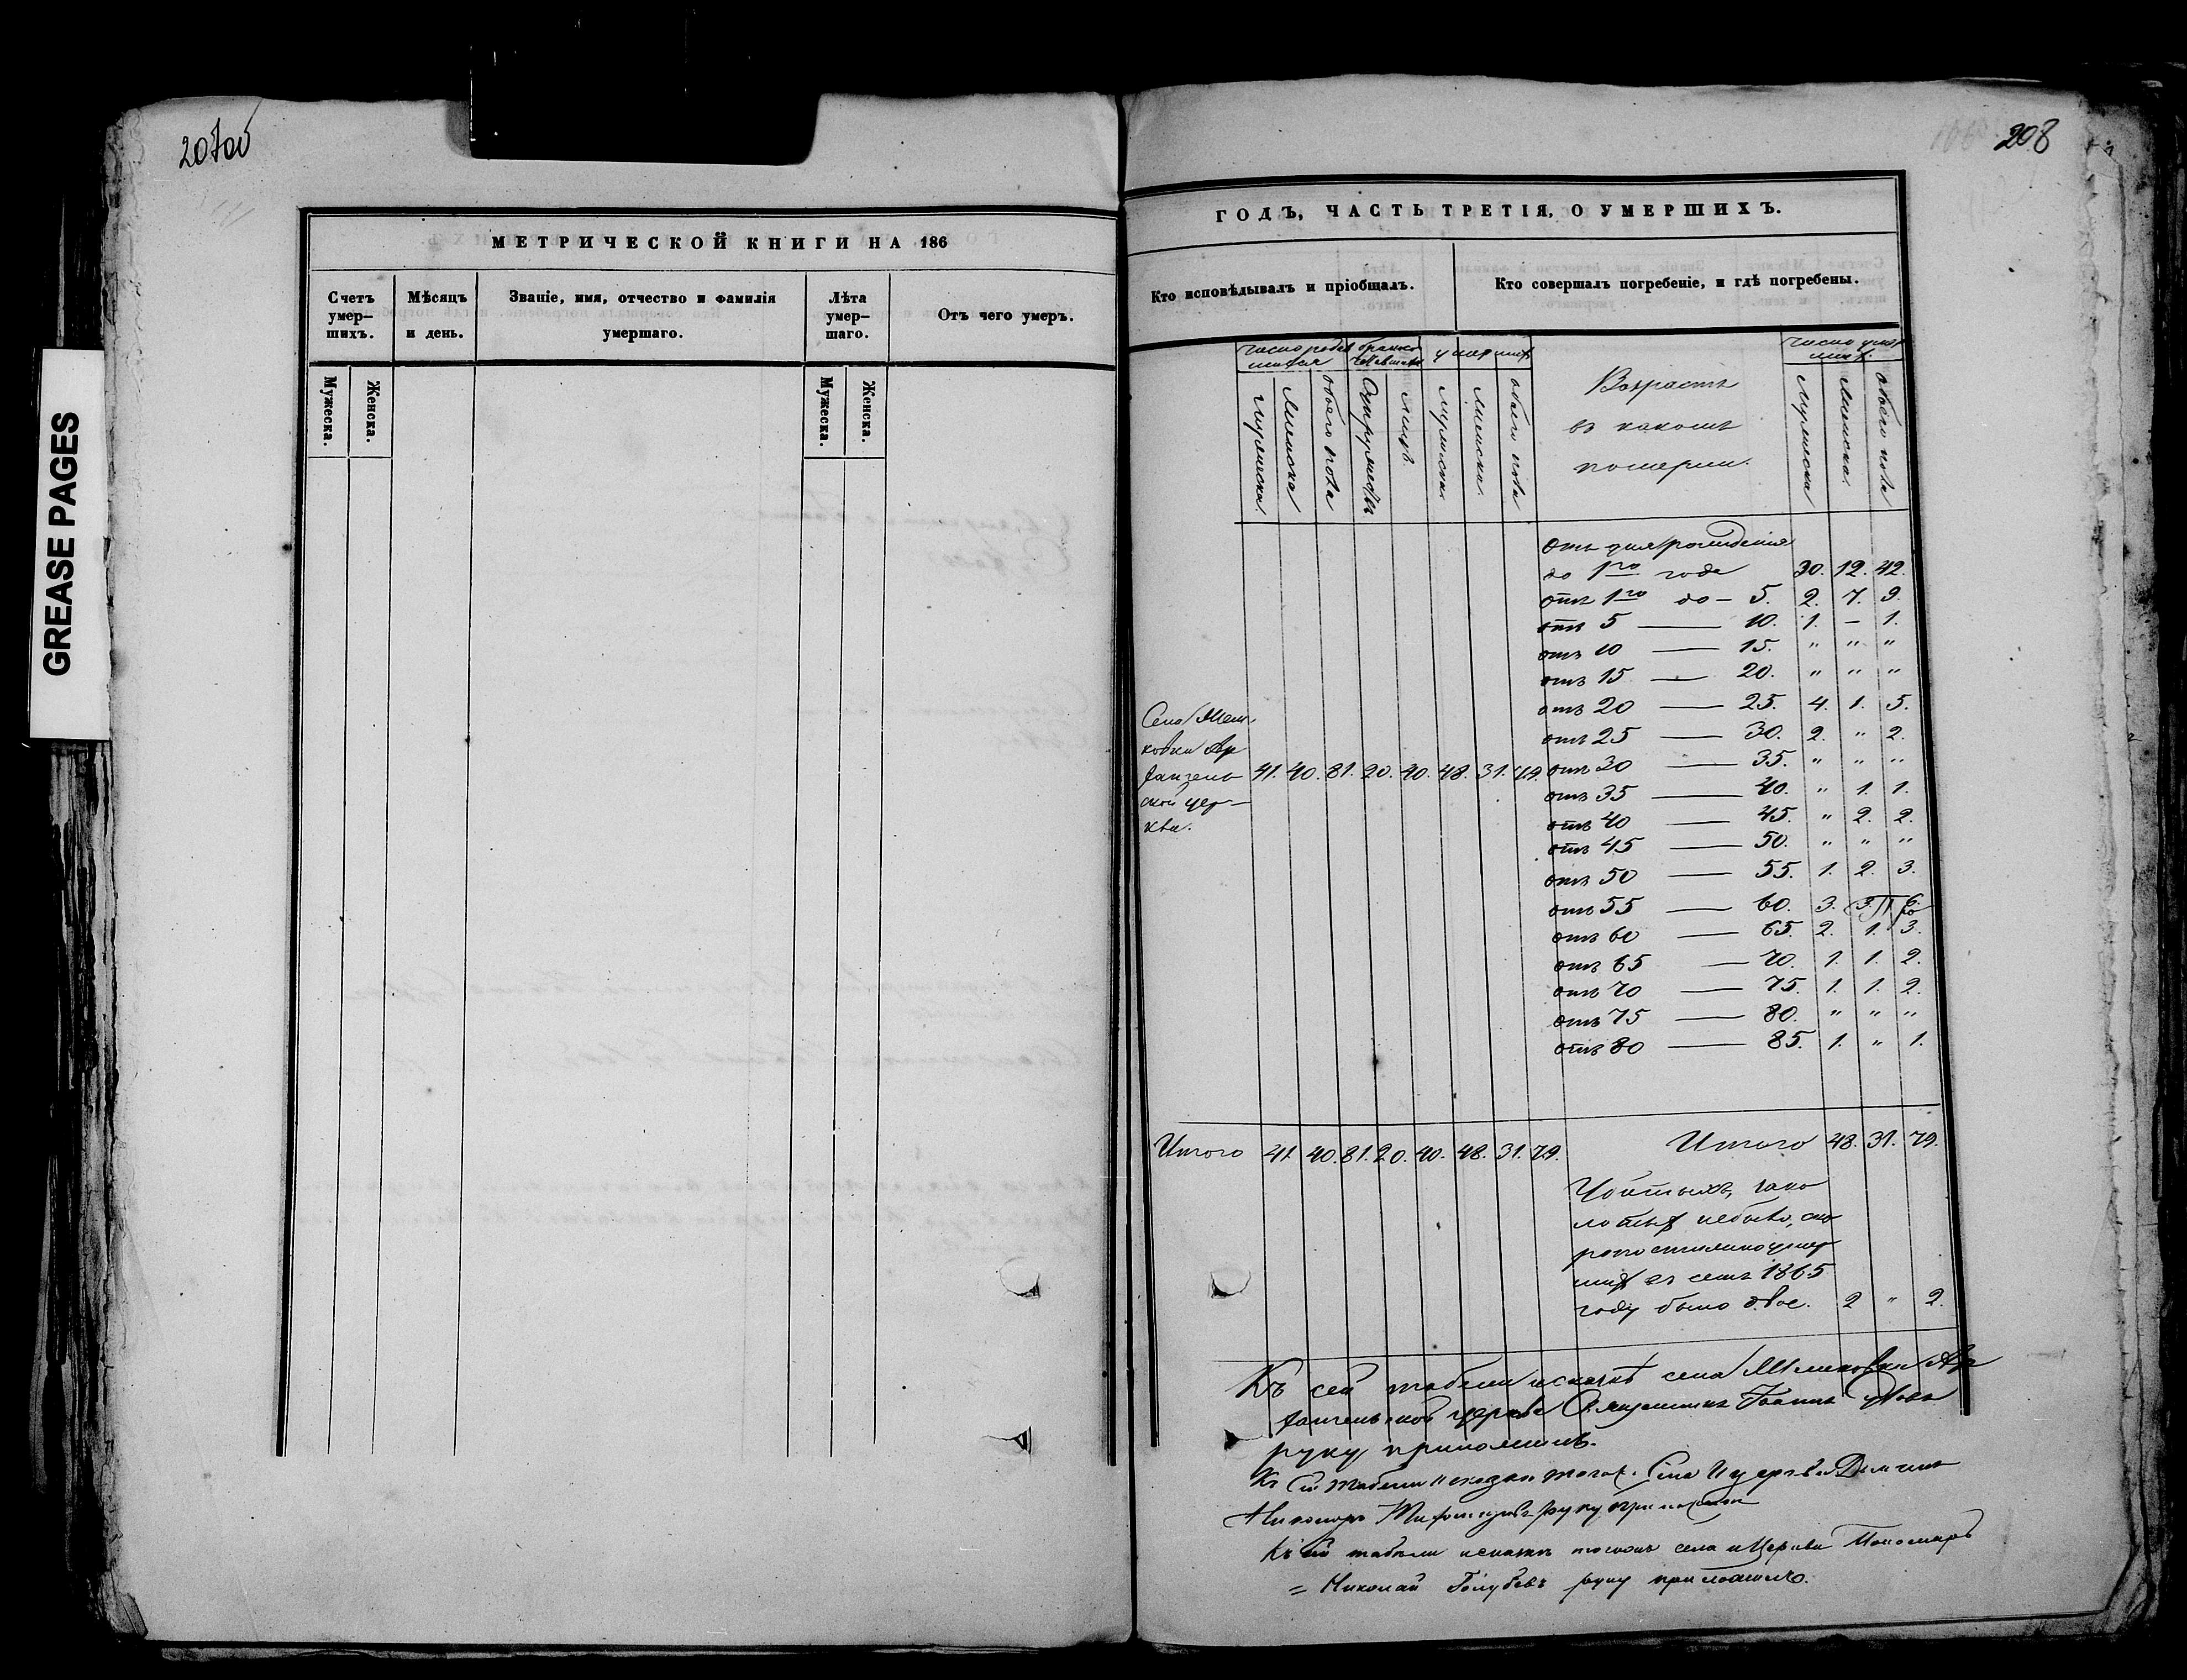 GREASE PAGES
207об
208
МЕТРИЧЕСКОЙ КНИГИ НА 186
Счетъ умер-шихъ.
Мѣсяцъ и день.
Званіе, имя, отчество и фамилія умершаго.
Лѣта умер-шаго.
Отъ чего умеръ.
Мужеска.
Женска.
Мужеска.
Женска.
ГОДЪ, ЧАСТЬ ТРЕТІЯ, О УМЕРШИХЪ.
Кто исповѣдывалъ и пріобщалъ.
Кто совершалъ погребеніе, и гдѣ погребены.
число родив
шихся
умерших
число умер
ших.
мужеска
женска
обоего пола
Супружествъ
лицъ
мужеска
женска
обоего пола
Возрастъ
въ какомъ
померли.
мужеска
женска
обоего пола
отъ дня рожденія
до 1го года 30. 12. 42.
отъ 1го до — 5. 2. 7. 9.
отъ 5 — 10. 1. — 1.
отъ 10 — 15. " " "
отъ 15 — 20. " " "
отъ 20 — 25. 4. 1. 5.
отъ 25 — 30. 2. " 2.
отъ 30 — 35. " " "
отъ 35 — 40. " 1. 1.
отъ 40 — 45. " 2. 2.
отъ 45 — 50. " " "
отъ 50 — 55. 1. 2. 3.
отъ 55 — 60. 3. 3. 6.
отъ 60 — 65. 2. 1. 3.
отъ 65 — 70. 1. 1. 2.
отъ 70 — 75. 1. 1. 2.
отъ 75 — 80. " " "
отъ 80 — 85. 1. " 1.
Села
ковки Ар
хангель
ской цер-
кви.
41. 40. 81. 20. 40. 48. 31. 79.
Итого 41. 40. 81. 20. 40. 48. 31. 79.
Итого 48. 31. 79.
Убитыхъ, зако
лотых небыло, ско
ропостижно умер
ших въ семъ 1865
году было двое. 2 " 2.
Къ сей табели и сказкѣ села Ар
хангельской церкви Священникъ Іоаннъ
руку приложилъ.
Къ сей табели и сказки тогож Села и церкви
руку приложилъ
Къ сей табели и сказкѣ тогожъ села и Церкви Пономарь
= Николай Голубевъ руку приложилъ.